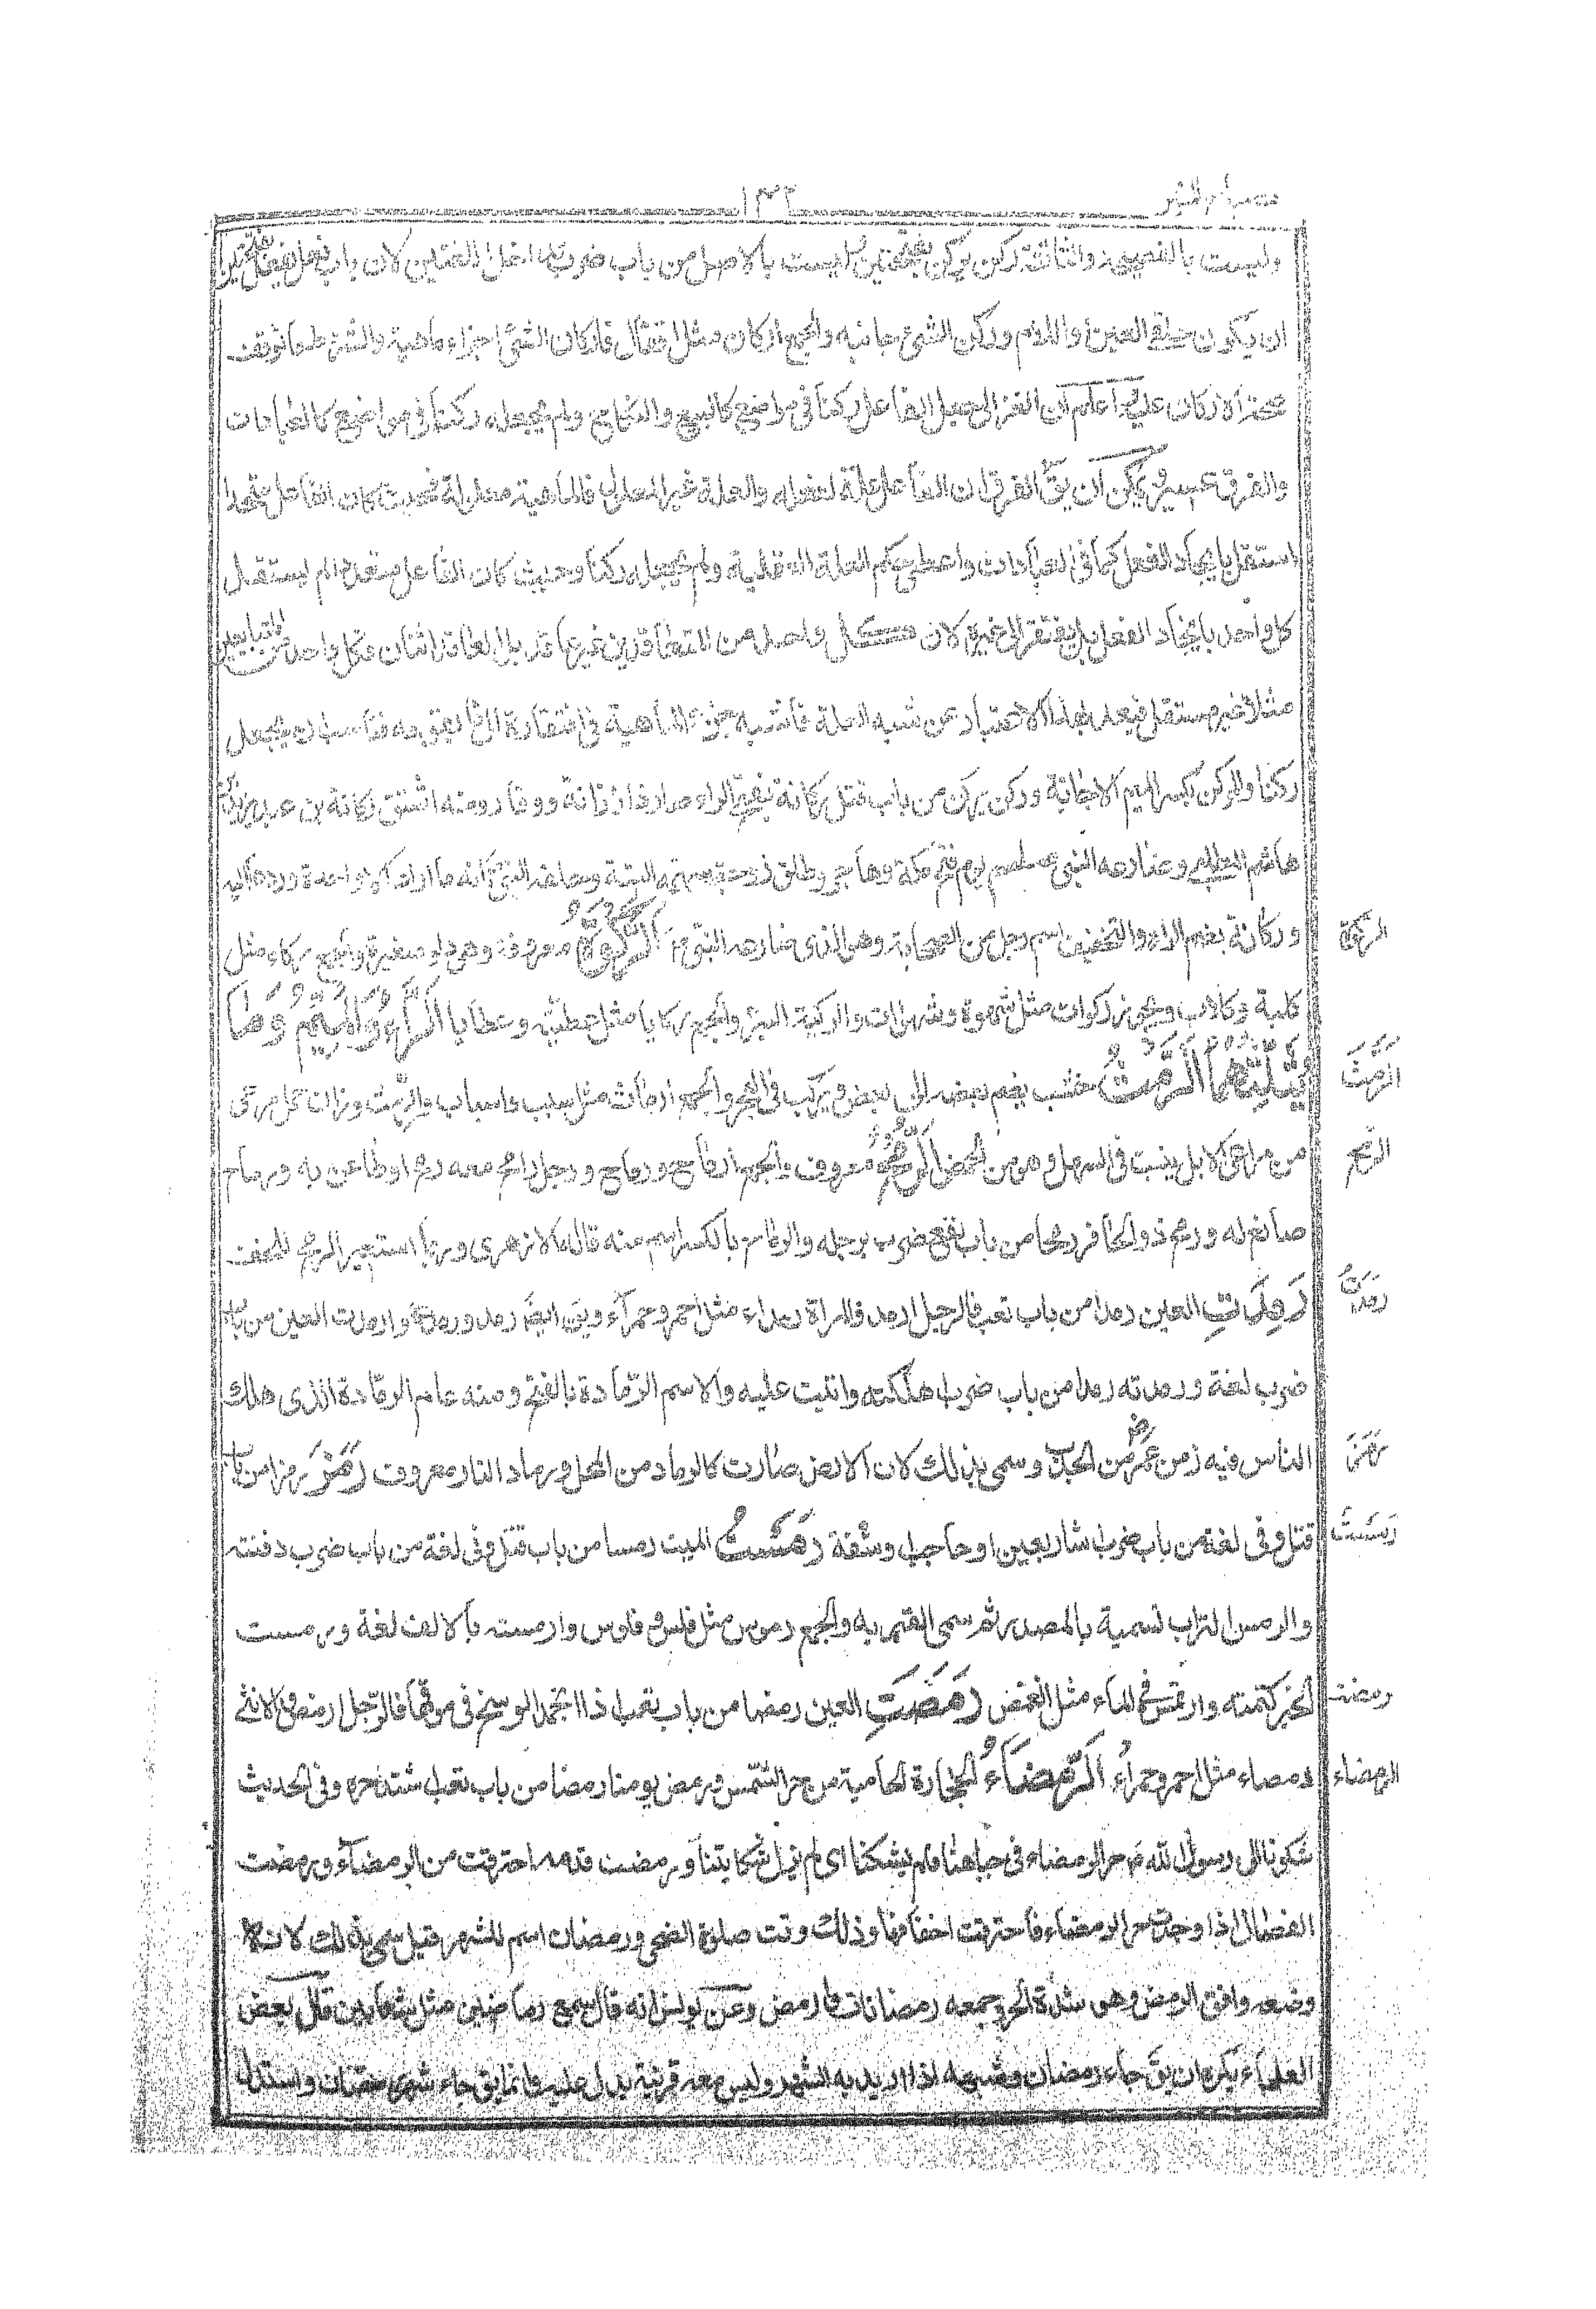 مصباح المنير
١٣٢
وليست بالفصيحة والثالثة ركن يركن بفتحتين وليست بالاصل من باب ضرب بل من تداخل اللغتين لان باب فعل يفعل بفتحتين
ان يكون حلقي العين او اللام وركن الشئ جانبه والجمع اركان مثل اقفال فاركان الشئ اجزاء ماهيته والشروط ما توقف
صحة الاركان عليها واعلم ان الغزالي جعل الفاعل ركنا في مواضع كالبيع والنكاح ولم يجعله ركنا في مواضع كالعبادات
والفرق عسير ويمكن ان يق الفرق ان الفاعل علة لفعله والعلة غير المعلول فالماهية معلولة فحيث كان الفاعل متحدا
استقل بايجاد الفعل كما في العبادات واعطي حكم العلة العقلية ولم يجعل ركنا وحيث كان الفاعل متعددا لم يستقل
كل واحد بايجاد الفعل بل يفتقر الى غيره لان كل واحد من المتعاقدين غير عاقد بل العاقد اثنان فكل واحد من المتبايعين
مثلا غير مستقل فبعد بهذا الاعتبار عن شبه العلة فاشبه جزء الماهية في افتقاره الى ما يقومه فناسب ان يجعل
ركنا والمركن بكسر الميم الاجانة وركن يركن من باب قتل ركانة بفتح الراء صار ذا رزانة ووقار ومنه اشتق ركانة بن عبد يزيد بن
هاشم المطلبي وعنا رعه النبي صلعم يوم فتح مكة وهاجر وطلق زوجته سهيمة البتة وحلفه النبي انه ما اراد الا واحدة وردها اليه
وركانة بضم الراء والتخفيف اسم رجل من الصحابة وهو الذي صارعه النبي ص الركوة معروفة وهي دلو صغيرة والجمع ركاء مثل
كلبة وكلاب ويجوز ركوات مثل شهوة وشهوات والركية البئر والجمع ركايا مثل عطية وعطايا الراء والميم وما
يثلثهما الرمث خشب يضم بعضه الى بعض ويركب في البحر والجمع ارماث مثل سبب واسباب والرمث وزان حمل مرعى
من مراعي الابل ينبت في السهل وهو من الحمض الرمح معروف والجمع ارماح ورماح ورجل رامح معه رمح او طاعن به ورماح
صانع له ورمح ذو الحافر رمحا من باب نفع ضرب برجله والرماح بالكسر اسم منه قاله الازهري وربما استعير الرمح للخف
رمدت العين رمدا من باب تعب فالرجل ارمد والمراة رمداء مثل احمر وحمراء ويق ايضا رمد ورمدة وارمدت العين من باب
ضرب لغة ورمدته رمدا من باب ضرب هلكته واتيت عليه والاسم الرمادة بالفتح ومنه عام الرمادة الذي هلك
الناس فيه زمن عمر رض من الجدب وسمى بذلك لان الارض صارت كالرماد من المحل ورماد النار معروف رمز رمزا من باب
قتل وفي لغة من باب ضرب اشار بعين او حاجب او شفة رمست الميت رمسا من باب قتل وفي لغة من باب ضرب دفنته
والرمس التراب تسمية بالمصدر ثم سمى القبر به والجمع رموس مثل فلس وفلوس وارمسته بالالف لغة ورمست
الخبر كتمته وارتمس في الماء مثل انغمس رمصت العين رمصا من باب تعب اذا اجمد الوسخ في موقها فالرجل ارمص والانثى
رمصاء مثل احمر وحمراء الرمضاء الحجارة الحامية من حر الشمس ورمض يومنا رمضا من باب تعب اشتد حره وفي الحديث
شكونا الى رسول الله ص حر الرمضاء في جباهنا فلم يشكنا اي لم يزل شكايتنا ورمضت قدمه احترقت من الرمضاء ورمضت
الفصال اذا وجدت حر الرمضاء فاحترقت اخفافها وذلك وقت صلوة الضحى ورمضان اسم للشهر قيل سمى بذلك لان
وضعه وافق الرمض وهو شدة الحر وجمعه رمضانات وارمض وعن يونس انه قال سمع رماضين مثل شعابين قال بعض
العلماء يكره ان يق جاء رمضان وشبهه اذا اريد به الشهر وليس معه قرينة يدل عليه وانما يق جاء شهر رمضان واستدل
الركوة
الرمث
الرمح
رمدت
رمز
رمست
رمصت
الرمضاء